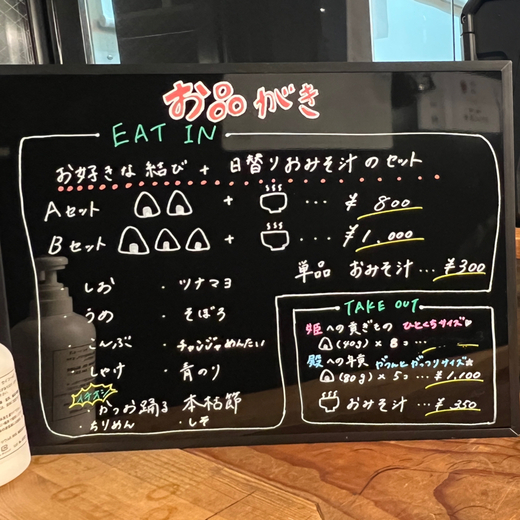 お品がき
EAT IN
お好きな結び + 日替りおみそ汁のセット
Aセット + ... ¥800
Bセット + ... ¥1,000
単品 おみそ汁 ... ¥300
・しお ・ツナマヨ
・うめ ・そぼろ
・こんぶ ・チャンジャめんたい
・しゃけ ・青のり
イチオシ
・かつお踊る 本枯節
ちりめん ・しそ
TAKE OUT
姫への貢ぎもの ひとくちサイズ
(40g) × 8 = ...
殿への年貢 がっつりサイズ
(80g) × 5 = ... ¥1,100
おみそ汁 ... ¥350